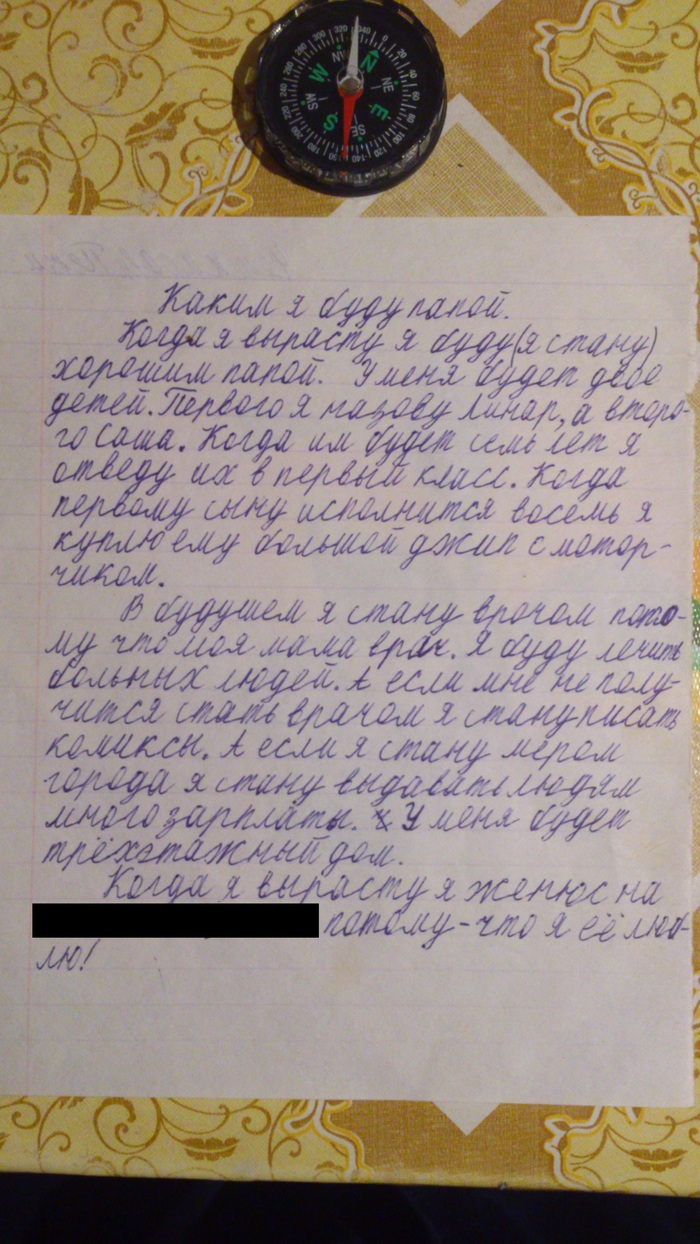 Каким я буду папой.
Когда я вырасту я буду (я стану)
хорошим папой. У меня будет двое
детей. Первого я назову Линар, а второ-
го Саша. Когда им будет семь лет я
отведу их в первый класс. Когда
первому сыну исполнится восемь я
куплю ему большой джип с мотор-
чиком.
В будушем я стану врочом пото-
му что моя мама врач. Я буду лечить
больных людей. А если мне не полу-
чится стать врачом я стану писать
комиксы. А если я стану мером
города я стану выдавать людям
много зарплаты. У меня будет
трёхэтажный дом.
Когда я вырасту я женюс на
потому-что я её люб-
лю!